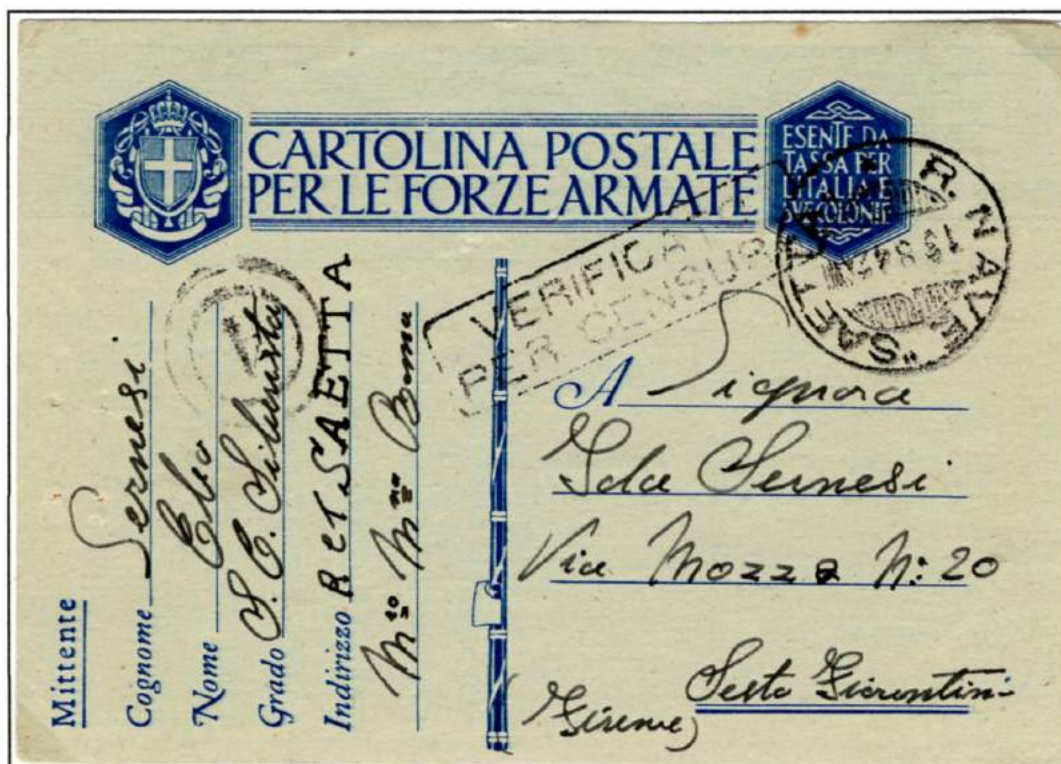 CARTOLINA POSTALE
PER LE FORZE ARMATE
ESENTE DA
TASSA PER
L'ITALIA E
SVE COLONIE
R. NAVE "SAETTA"
VERIFICATO
PER CENSURA
Mittente
Cognome Sernesi
Nome Elio
Grado S. C. Silurista
Indirizzo R CT SAETTA
M<sup>ro</sup> M<sup>na</sup> Roma
A Signora
Ida Sernesi
Via Mozza N: 20
Sesto Fiorentin
Firenze)